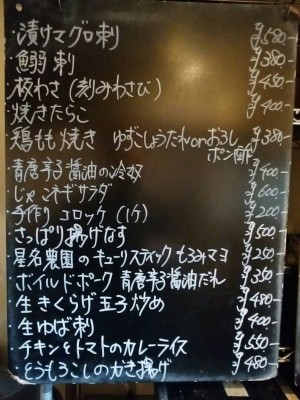 ・漬けマグロ刺 ¥580-
・鰯刺 ¥380-
・板わさ(刻みわさび) ¥450-
・焼きたらこ ¥400-
・鶏もも焼き ゆずこしょうだれorおろしポン酢 ¥380-
・青唐辛子醤油の冷奴 ¥400-
・じゃこネギサラダ ¥600-
・手作りコロッケ(1ケ) ¥200-
・さっぱり揚げなす ¥500-
・星名農園のキューリスティック もろみマヨ ¥250-
・ボイルドポーク 青唐辛子醤油だれ ¥350-
・生きくらげ玉子炒め ¥480-
・生ゆば刺 ¥400-
・チキンとトマトのカレーライス ¥550-
・とうもろこしのかき揚げ ¥480-